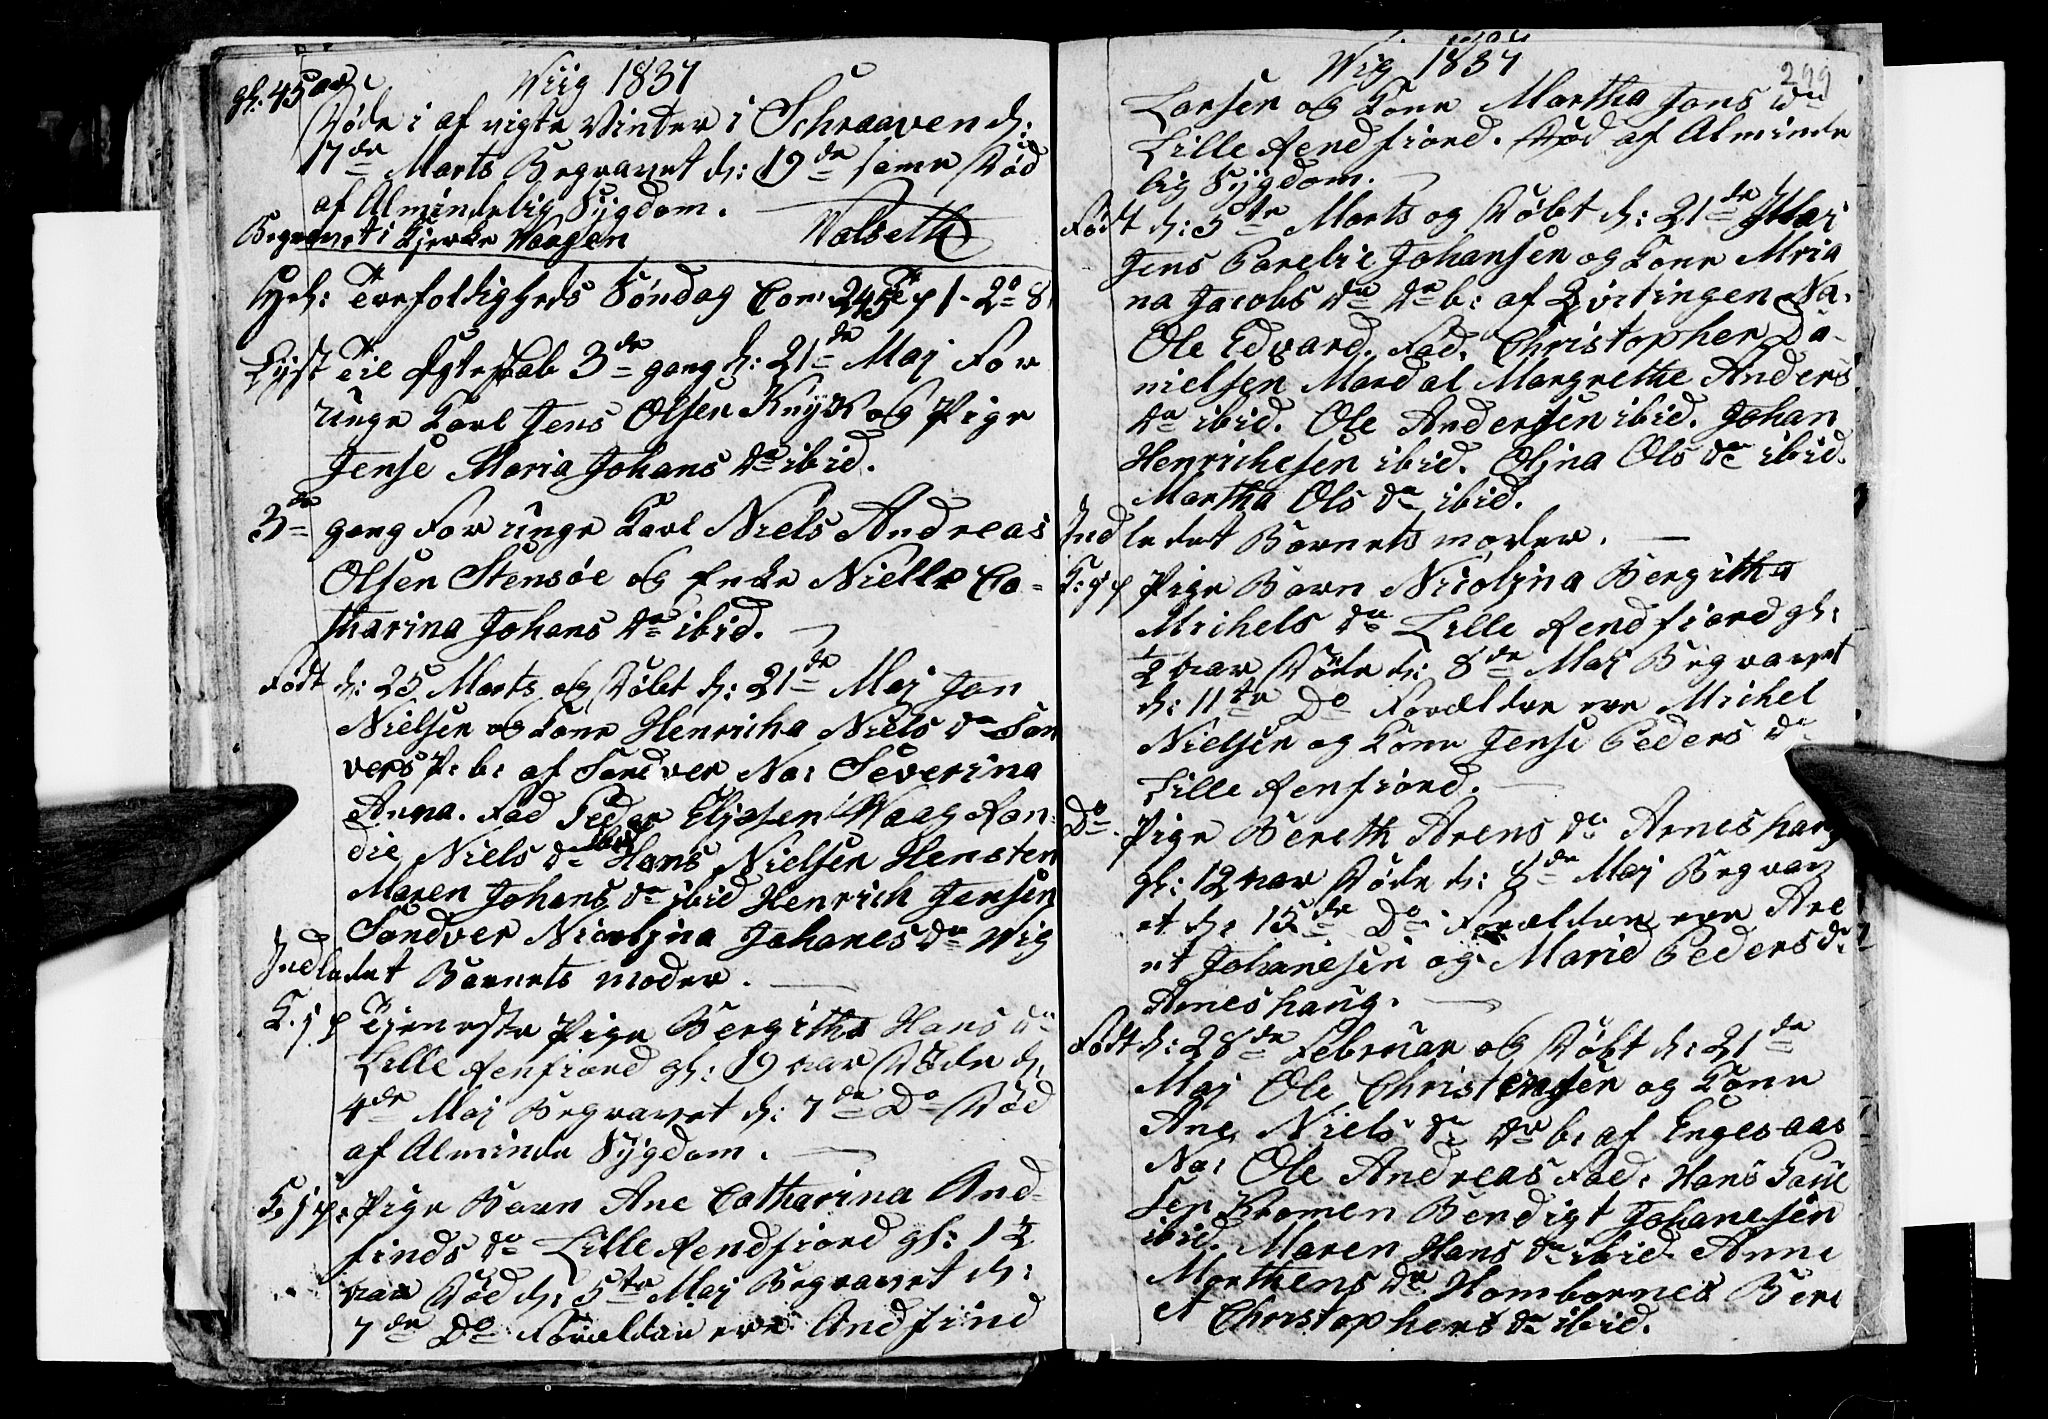 Wiig 1837
gl: 45 aar
Døde i af vigte Vinter i Schraaven d:
17de Marts Begravet d: 19de same Død
af Almindelig Sygdom.
Begravet i Kjerke Vaagen Wolseth
Trefoldigheds Søndag Com: 245
Lyst Til Ægteskab 3de gang d: 21de Maj For
unge Karl Jens Olsen Knyk og Pige
Jense Maria Johans da ibid.
3de gang For unge Karl Niels Andreas
Olsen Stensøe og Enke Nielle Ca-
tharina Johans da ibid.
Født d: 25 Marts og Døbt d: 21de Maj Jan
Nielsen og Kone Henricha Niels da San
vers P: b: af Sandver Na: Severina
Anna. Fad Peder Eljasen Waag Ran-
die Niels da ibid Hans Nielsen Hensten
Maren Johans da ibid Henrich Jensen
Sandver Nicoljna Johanes da Wig
Indledet Barnets moder.
K. j p Tjeneste Pige Bergitha Hans da
Lille Renfiord gl: 19 aar Døde d.
4de Maj Begravet d: 7de Do Død
af Alminde Sygdom.
K. j p: Pige Barn Ane Catharina And-
finds da Lille Rendfiord gl: 1 1/2
aar Død d: 5te Maj Begravet d:
7de Do Forældre ere Andfind
Wig 1837
299
Larsen og Kone Martha Jans da
Lille Rendfiord. Død af Alminde
lig Sygdom.
Født d: 5te Marts og Døbt d: 21de Maj
Jens Parelie Johansen og Kone Mria
na Jacobs da b: af Qvitingen Na.
Ole Edvard. Fad. Christopher Da-
nielsen Mardal Margrethe Anders
da ibid. Ole Andersen ibid. Johan
Henrichsen ibid. Oljna Ols da ibid.
Martha Ols da ibid.
Indledet Barnets moder.
K: j p Pige Barn Nicoljna Bergitha
Michels da Lille Rendfiord gl:
1/2 aar Døde d: 8de Maj Begravet
d: 11te Do Forældre ere Michel
Nielsen og Kone Jense Peders da
Lille Renfiord.
Do Pige Bereth Arens da Arneshaug
gl: 12 aar Døde d: 8de Maj Begrav
et d: 15de Do Forældre ere Are
nt Johanesen og Marie Peders da
Arneshaug.
Født d: 28de Februar og Døbt d: 21de
Maj Ole Christensen og Kone
Ane Niels da b: af Engesaas
Na: Ole Andreas Fad: Hans Paul
sen Kramen Bendigt Johanesen
ibid. Maren Hans da ibid. Anne
Morthens da Hombornes Bere
t Christophers da ibid.